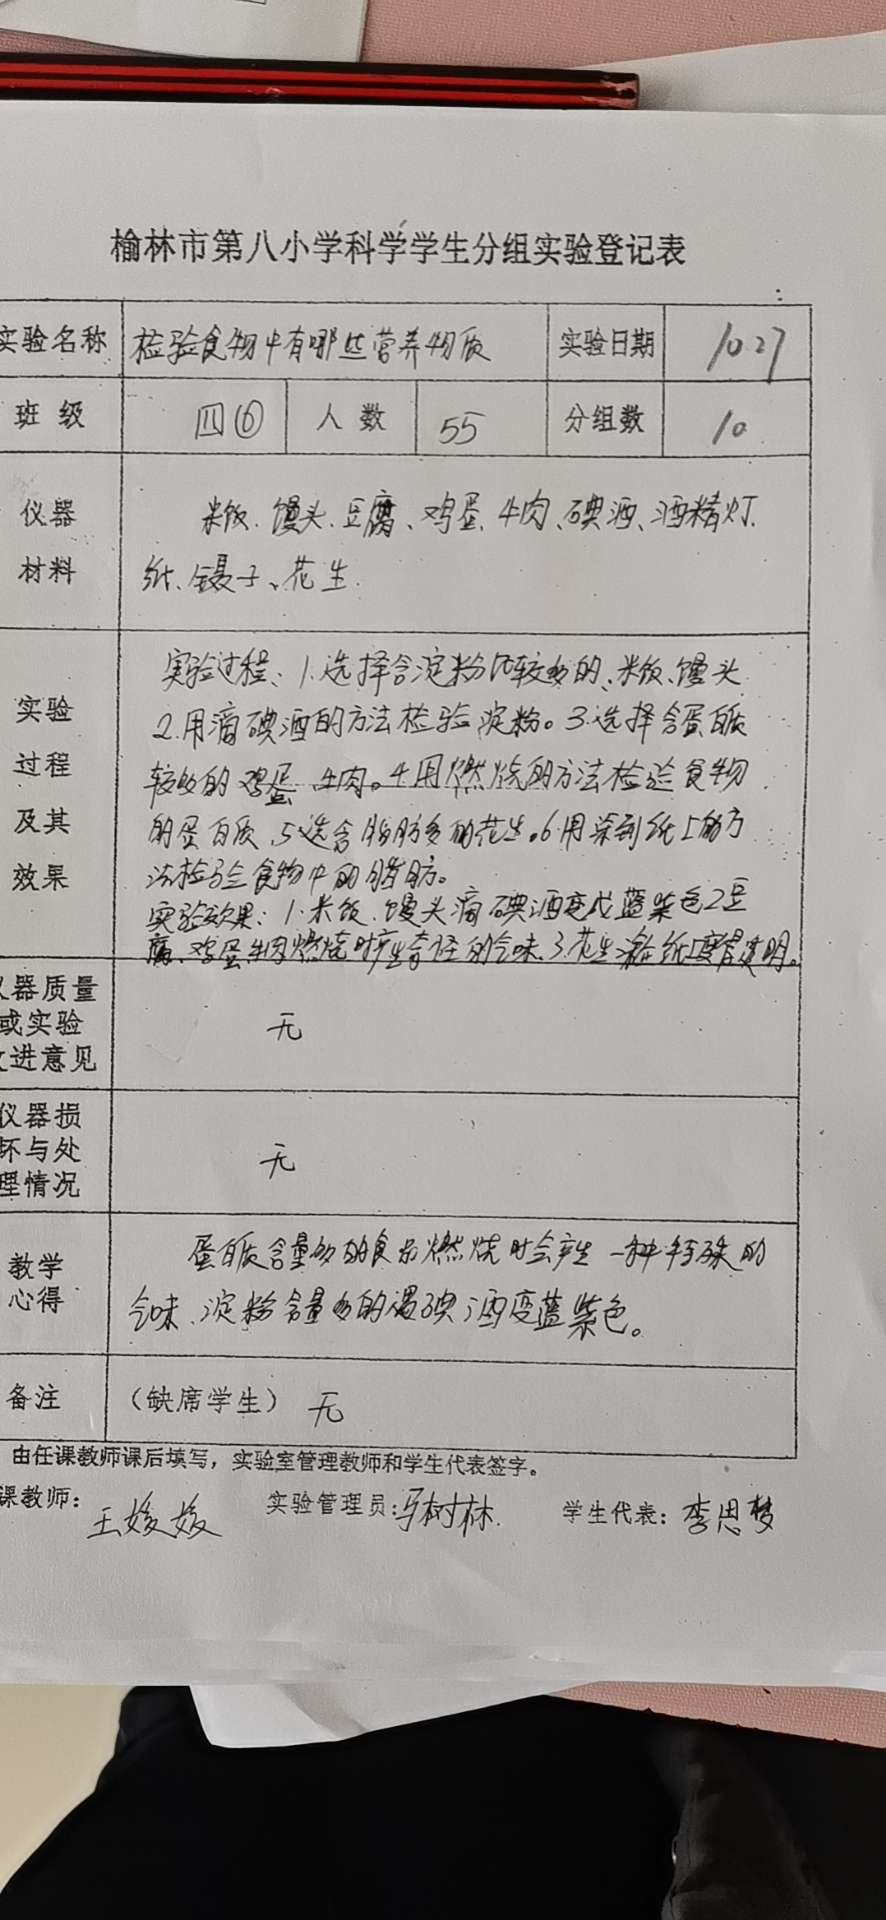 榆林市第八小学科学学生分组实验登记表
实验名称 检验食物中有哪些营养物质 实验日期 10.27
班级 四⑥ 人数 55 分组数 10
仪器 米饭、馒头、豆腐、鸡蛋、牛肉、碘酒、酒精灯、
材料 纸、镊子、花生.
实验过程: 1.选择含淀粉比较多的、米饭、馒头
实验 2.用滴碘酒的方法检验淀粉。3.选择含蛋白质
过程 较多的鸡蛋、牛肉。4.用燃烧的方法检验食物
及其 的蛋白质、5.选含脂肪多的花生。6.用涂到纸上的方
效果 法检验食物中的脂肪。
实验效果: 1.米饭、馒头滴碘酒变成蓝紫色2.豆
腐、鸡蛋、牛肉燃烧时产生奇怪的气味、3.花生 纸上变得透明。
仪器质量
或实验 无
改进意见
仪器损
坏与处 无
理情况
教学 蛋白质含量多的食品燃烧时会产生一种特殊的
心得 气味、淀粉含量多的遇碘酒变蓝紫色。
备注 (缺席学生) 无
由任课教师课后填写，实验室管理教师和学生代表签字。
课教师: 王媛媛 实验管理员: 马树林. 学生代表: 李思梦